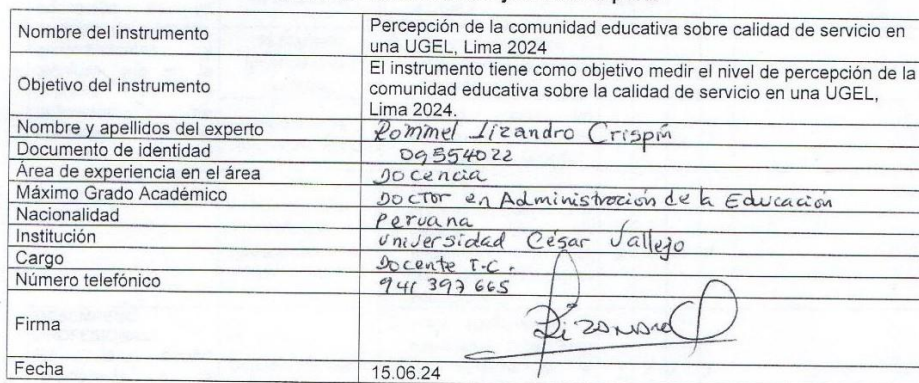 Nombre del instrumento
Percepción de la comunidad educativa sobre calidad de servicio en
una UGEL, Lima 2024
Objetivo del instrumento
El instrumento tiene como objetivo medir el nivel de percepción de la
comunidad educativa sobre la calidad de servicio en una UGEL,
Lima 2024.
Nombre y apellidos del experto Rommel Lizandro Crispín
Documento de identidad 09554022
Área de experiencia en el área Docencia
Máximo Grado Académico Doctor en Administración de la Educación
Nacionalidad Peruana
Institución Universidad César Vallejo
Cargo Docente T.C.
Número telefónico 941 397 665
Firma Lizandro
Fecha 15.06.24